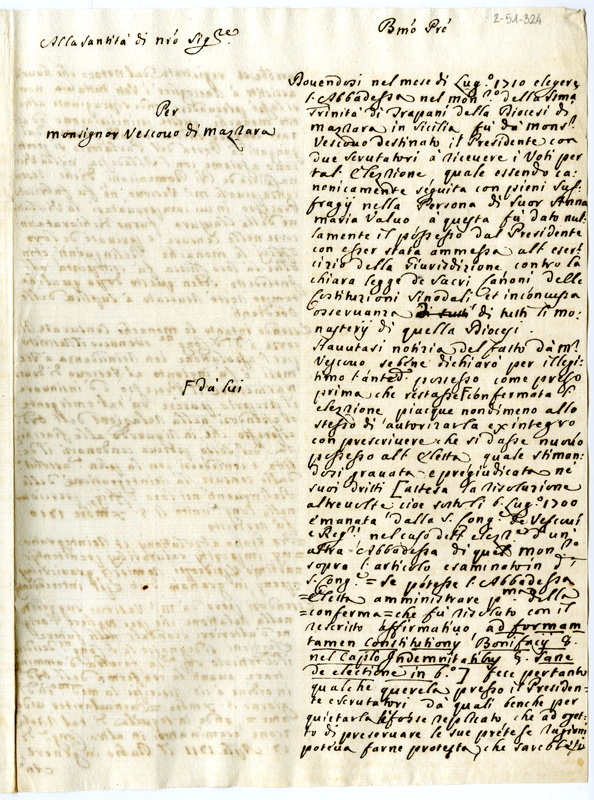 2-51-324
Alla Santità di nrõ Sig.re
Per
monsignor Vescovo di Mazzara
Bmõ Prẽ
Dovendosi nel mese di Lug.o 1710 elegere
l'Abbadessa nel mon.ro della SSma
Trinità di Trapani della Diocesi di
mazzara in Sicilia, fù da mons.r
Vescovo destinato il Presidente con
due scrutatori à ricevere i Voti per
tal Elezzione, quale essendo ca:
nonicamente seguita con pieni suf:
fragij nella Persona di Suor Anna
maria Valuo à questa fù dato nul:
lamente il possesso dal Presidente
con esser stata ammessa all'eser:
cizio della Giurisdizione contro la
chiara legge de Sacri Canoni delle
Costituzioni Sinodali, et inconcussa
osservanza di tutti di tutti li mo:
nasterij di quella Diocesi.
Havutasi notizia del fatto da m.r
Vescovo sebene dichiarò per illegi:
timo l'anted.o possesso come preso
prima che restasse confermata l'
F da lui
elezzione piacque nondimeno allo
stesso di autorizarla ex integro
con prescrivere che si dasse nuovo
possesso all'Eletta, quale stiman:
dosi gravata e pregiudicata ne
suoi dritti [attesa la risoluzione
altrevolte cioè sotto li 6. Lug.o 1700
emanata dalla S. Cong.e de Vescovi
e Reg.ri nel caso dell'elezz.e d'un
altra Abbadessa di quel mon.ro
sopra l'articolo esaminato in d.a
S. Cong.e = Se potesse l'Abbadessa
=Eletta amministrare p.ma della
=conferma= che fù risoluto con il
rescritto affirmativo, ad formam
tamen Constitutionis Bonifacij 8.
nel Capitõ Indemnitatibus §. Sane
de electione in 6.o] fece pertanto
qualche querela presso il Presiden:
te e scrutatori da quali benche per
quietarla li fosse replicato, che ad ogget:
to di preservare le sue pretese ragioni
poteva farne protesta, che sarebbe